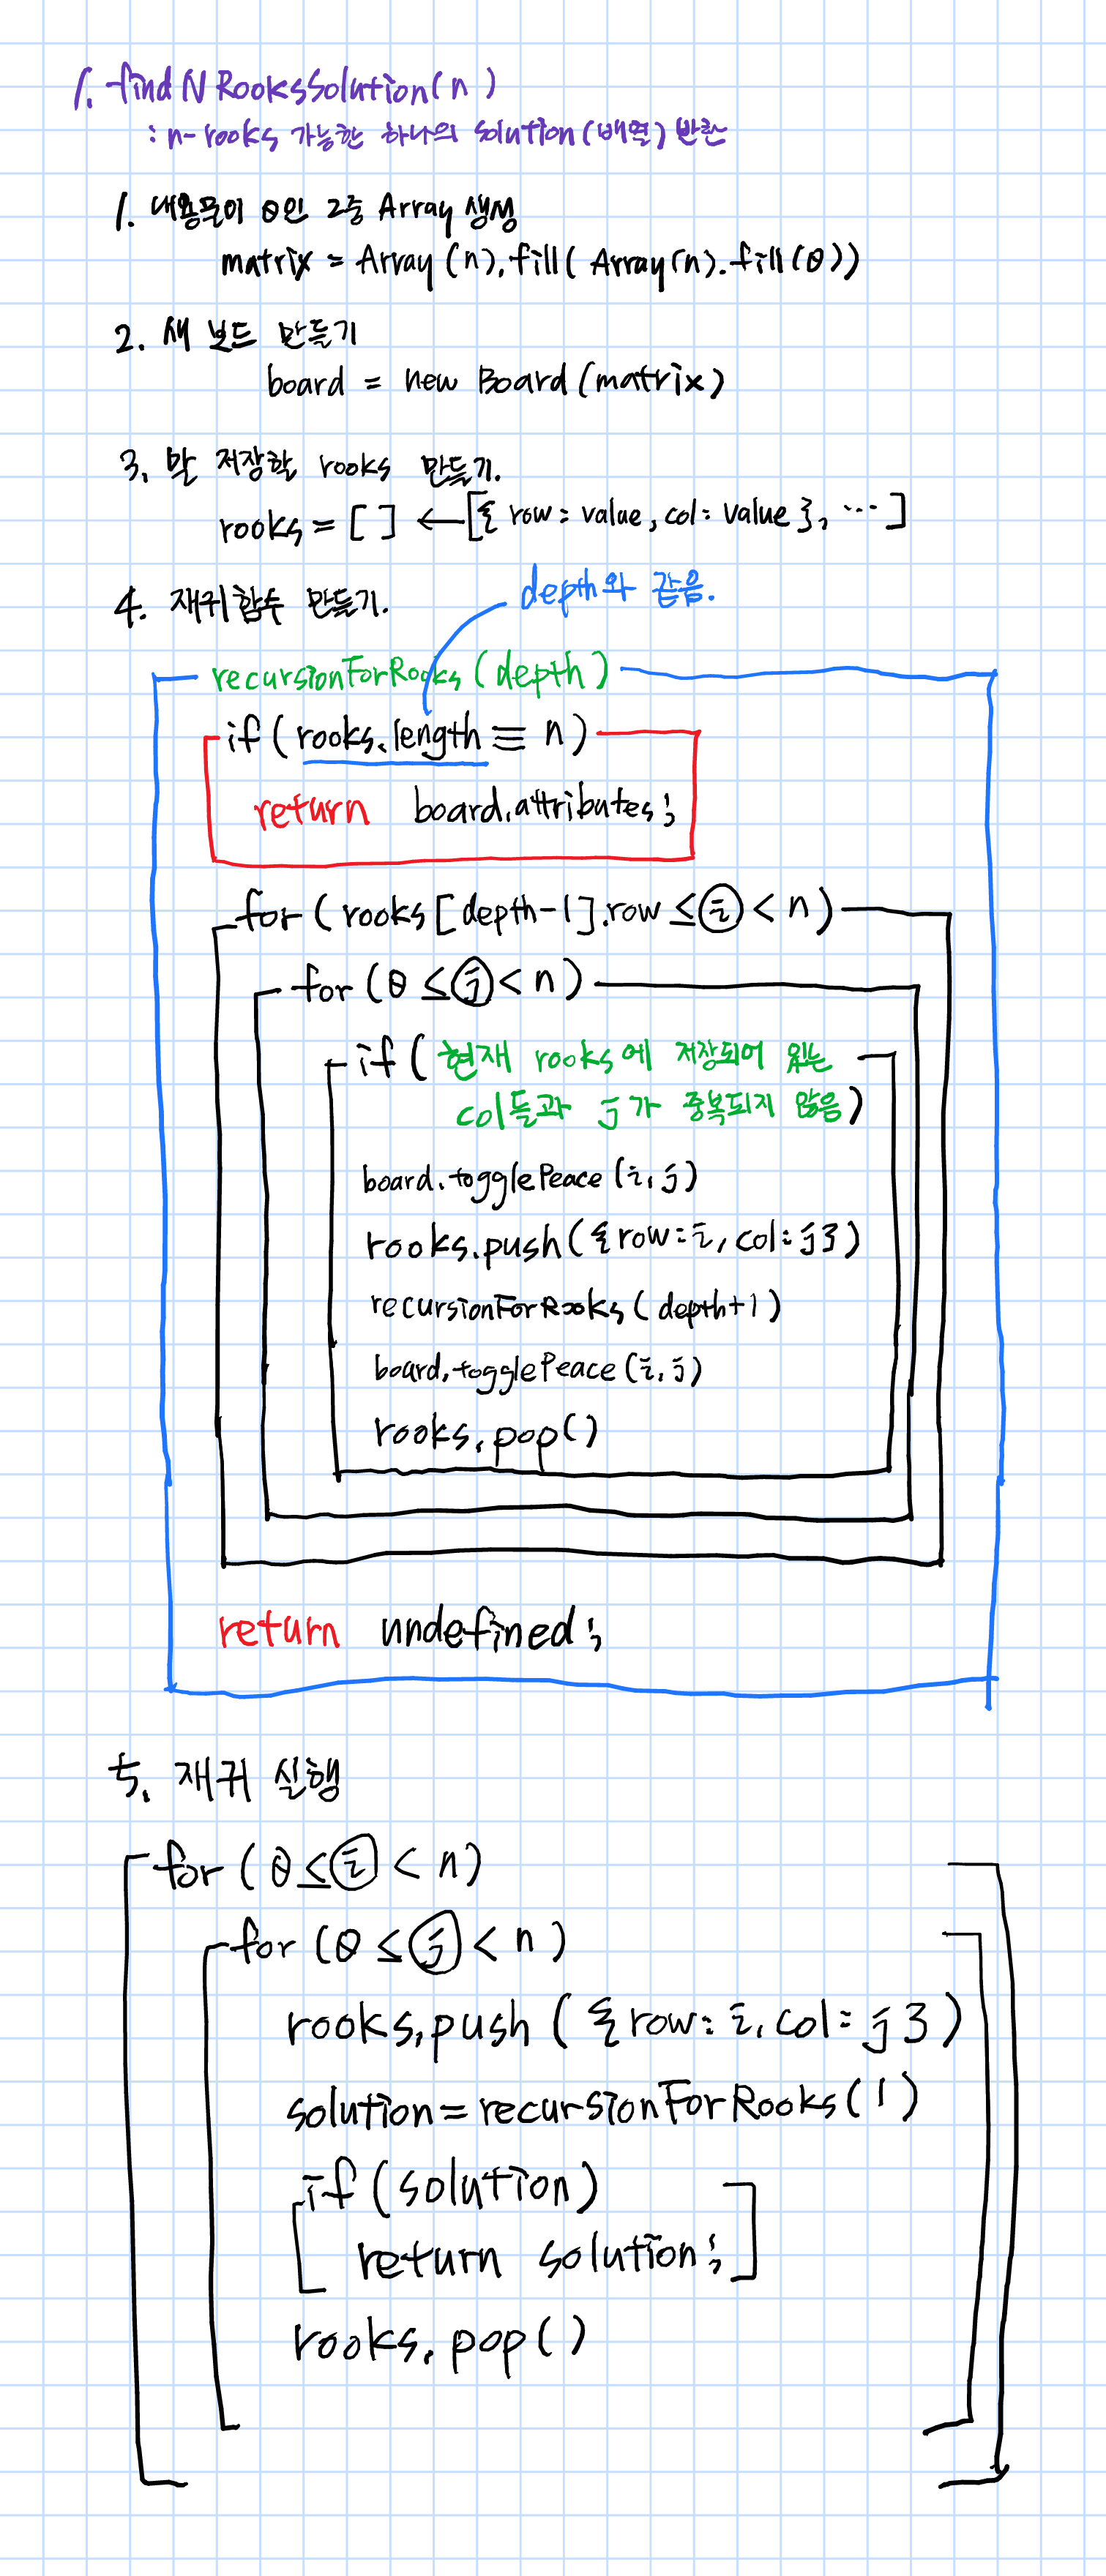 1. findNRooksSolution(n)
: n-rooks 가능한 하나의 solution(배열) 반환
1. 내용물이 0인 2중 Array 생성
matrix = Array(n).fill(Array(n).fill(0))
2. 새 보드 만들기
board = new Board(matrix)
3. 말 저장할 rooks 만들기.
rooks = [ ] ← [{row: value, col: value}, ...]
4. 재귀함수 만들기.
depth와 같음.
recursionForRooks(depth)
if(rooks.length ≡ n)
return board.attributes;
for(rooks[depth-1].row ≤ i < n)
for(0 ≤ j < n)
if(현재 rooks에 저장되어 있는
col들과 j가 중복되지 않음)
board.togglePeace(i, j)
rooks.push({row: i, col: j})
recursionForRooks(depth+1)
board.togglePeace(i, j)
rooks.pop()
return undefined;
5. 재귀 실행
for(0 ≤ i < n)
for(0 ≤ j < n)
rooks.push({row: i, col: j})
solution = recursionForRooks(1)
if(solution)
return solution;
rooks.pop()